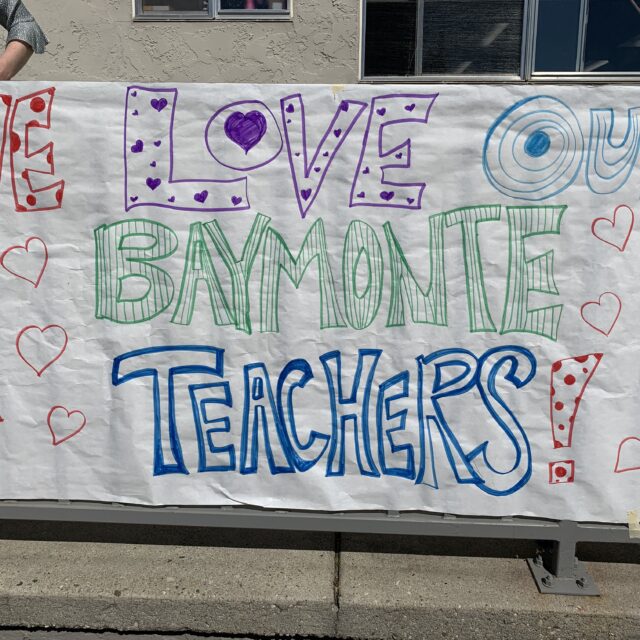 E LOVE OU
BAYMONTE
TEACHERS!